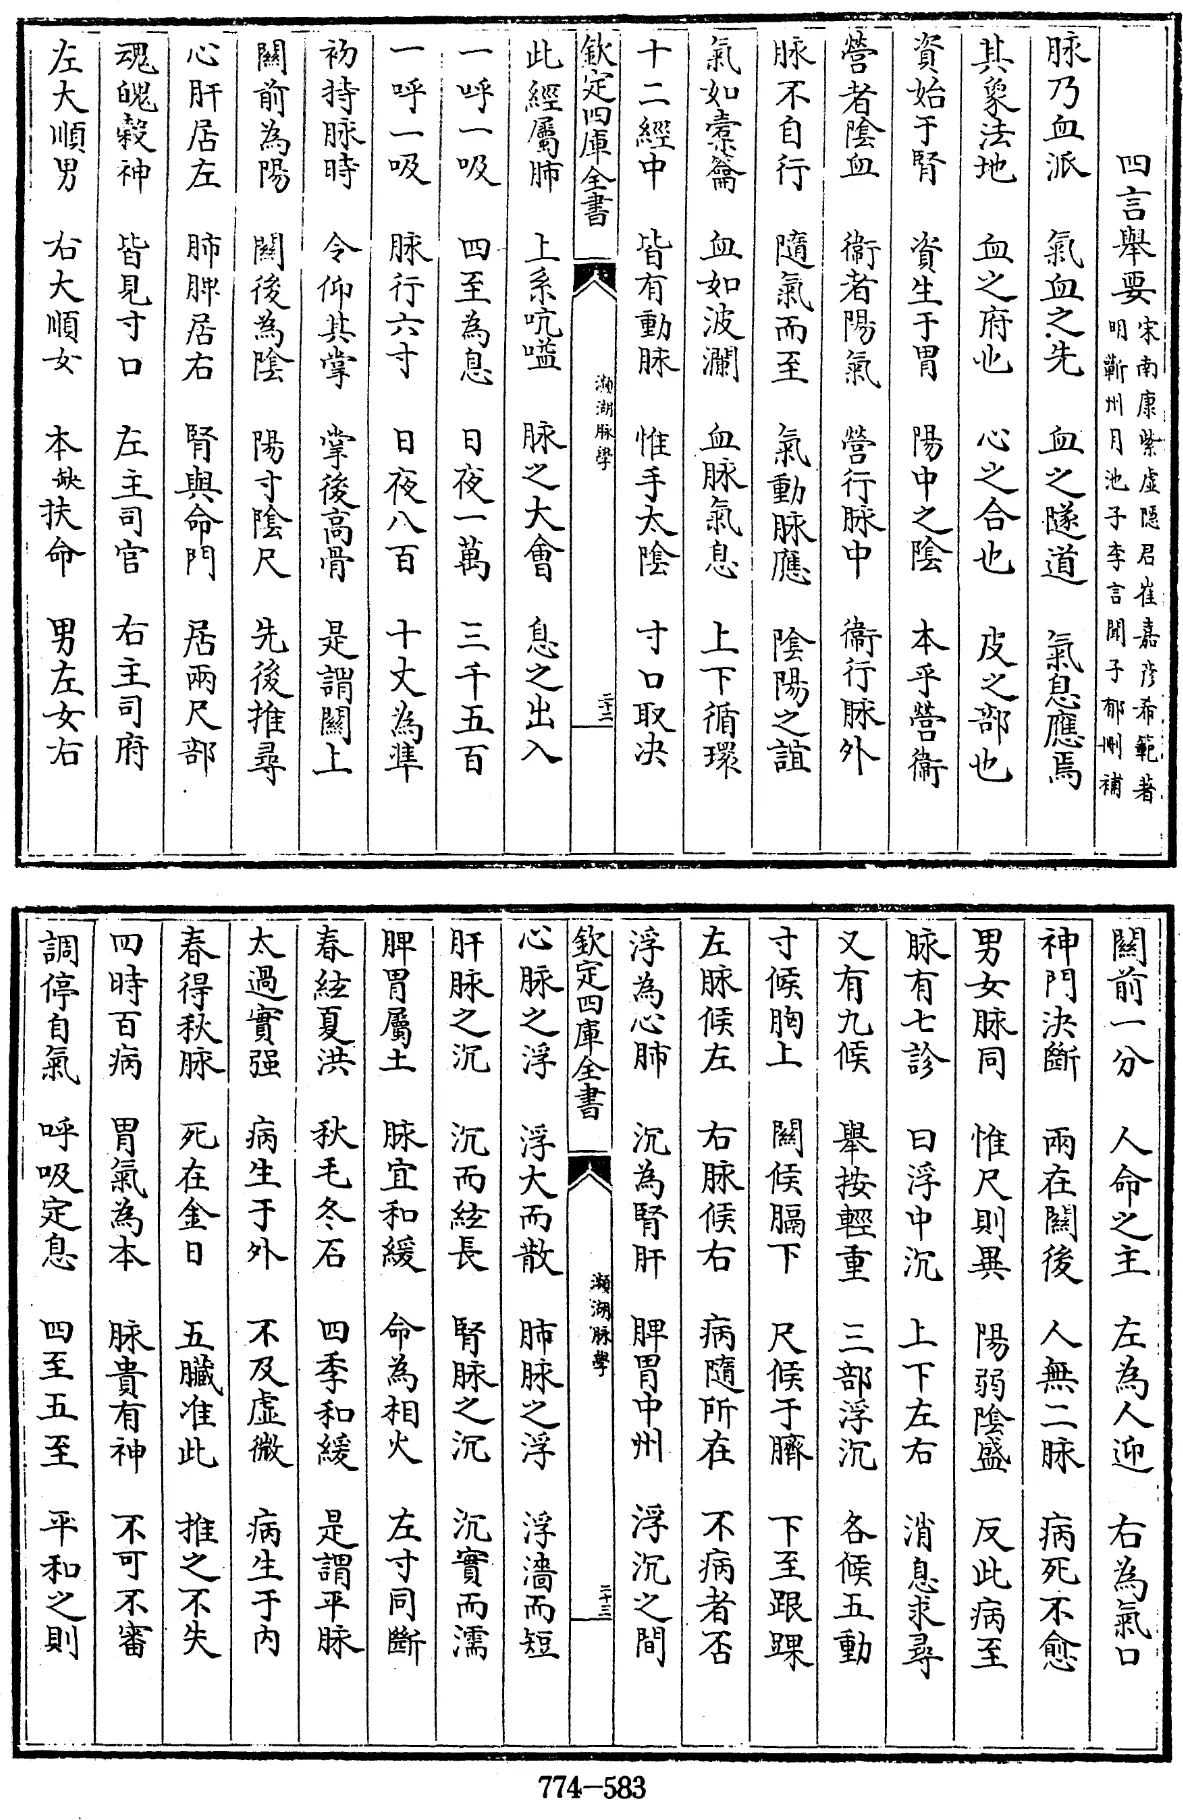 四言舉要 宋南康紫虛隱君崔嘉彥希範著
明蘄州月池子李言聞子郁刪補
脉乃血派 氣血之先 血之隧道 氣息應焉
其象法地 血之府也 心之合也 皮之部也
資始于腎 資生于胃 陽中之陰 本乎營衞
營者陰血 衞者陽氣 營行脉中 衞行脉外
脉不自行 隨氣而至 氣動脉應 陰陽之誼
氣如橐籥 血如波瀾 血脉氣息 上下循環
十二經中 皆有動脉 惟手太陰 寸口取决
欽定四庫全書 瀕湖脉學 二十二
此經屬肺 上系吭嗌 脉之大會 息之出入
一呼一吸 四至為息 日夜一萬 三千五百
一呼一吸 脉行六寸 日夜八百 十丈為準
初持脉時 令仰其掌 掌後高骨 是謂關上
關前為陽 關後為陰 陽寸陰尺 先後推尋
心肝居左 肺脾居右 腎與命門 居兩尺部
魂魄穀神 皆見寸口 左主司官 右主司府
左大順男 右大順女 本缺扶命 男左女右
關前一分 人命之主 左為人迎 右為氣口
神門決斷 兩在關後 人無二脉 病死不愈
男女脉同 惟尺則異 陽弱陰盛 反此病至
脉有七診 曰浮中沉 上下左右 消息求尋
又有九候 舉按輕重 三部浮沉 各候五動
寸候胸上 關候膈下 尺候于臍 下至跟踝
左脉候左 右脉候右 病隨所在 不病者否
浮為心肺 沉為腎肝 脾胃中州 浮沉之間
欽定四庫全書 瀕湖脉學 二十三
心脉之浮 浮大而散 肺脉之浮 浮濇而短
肝脉之沉 沉而絃長 腎脉之沉 沉實而濡
脾胃屬土 脉宜和緩 命為相火 左寸同斷
春絃夏洪 秋毛冬石 四季和緩 是謂平脉
太過實强 病生于外 不及虛微 病生于內
春得秋脉 死在金日 五臟准此 推之不失
四時百病 胃氣為本 脉貴有神 不可不審
調停自氣 呼吸定息 四至五至 平和之則
774-583